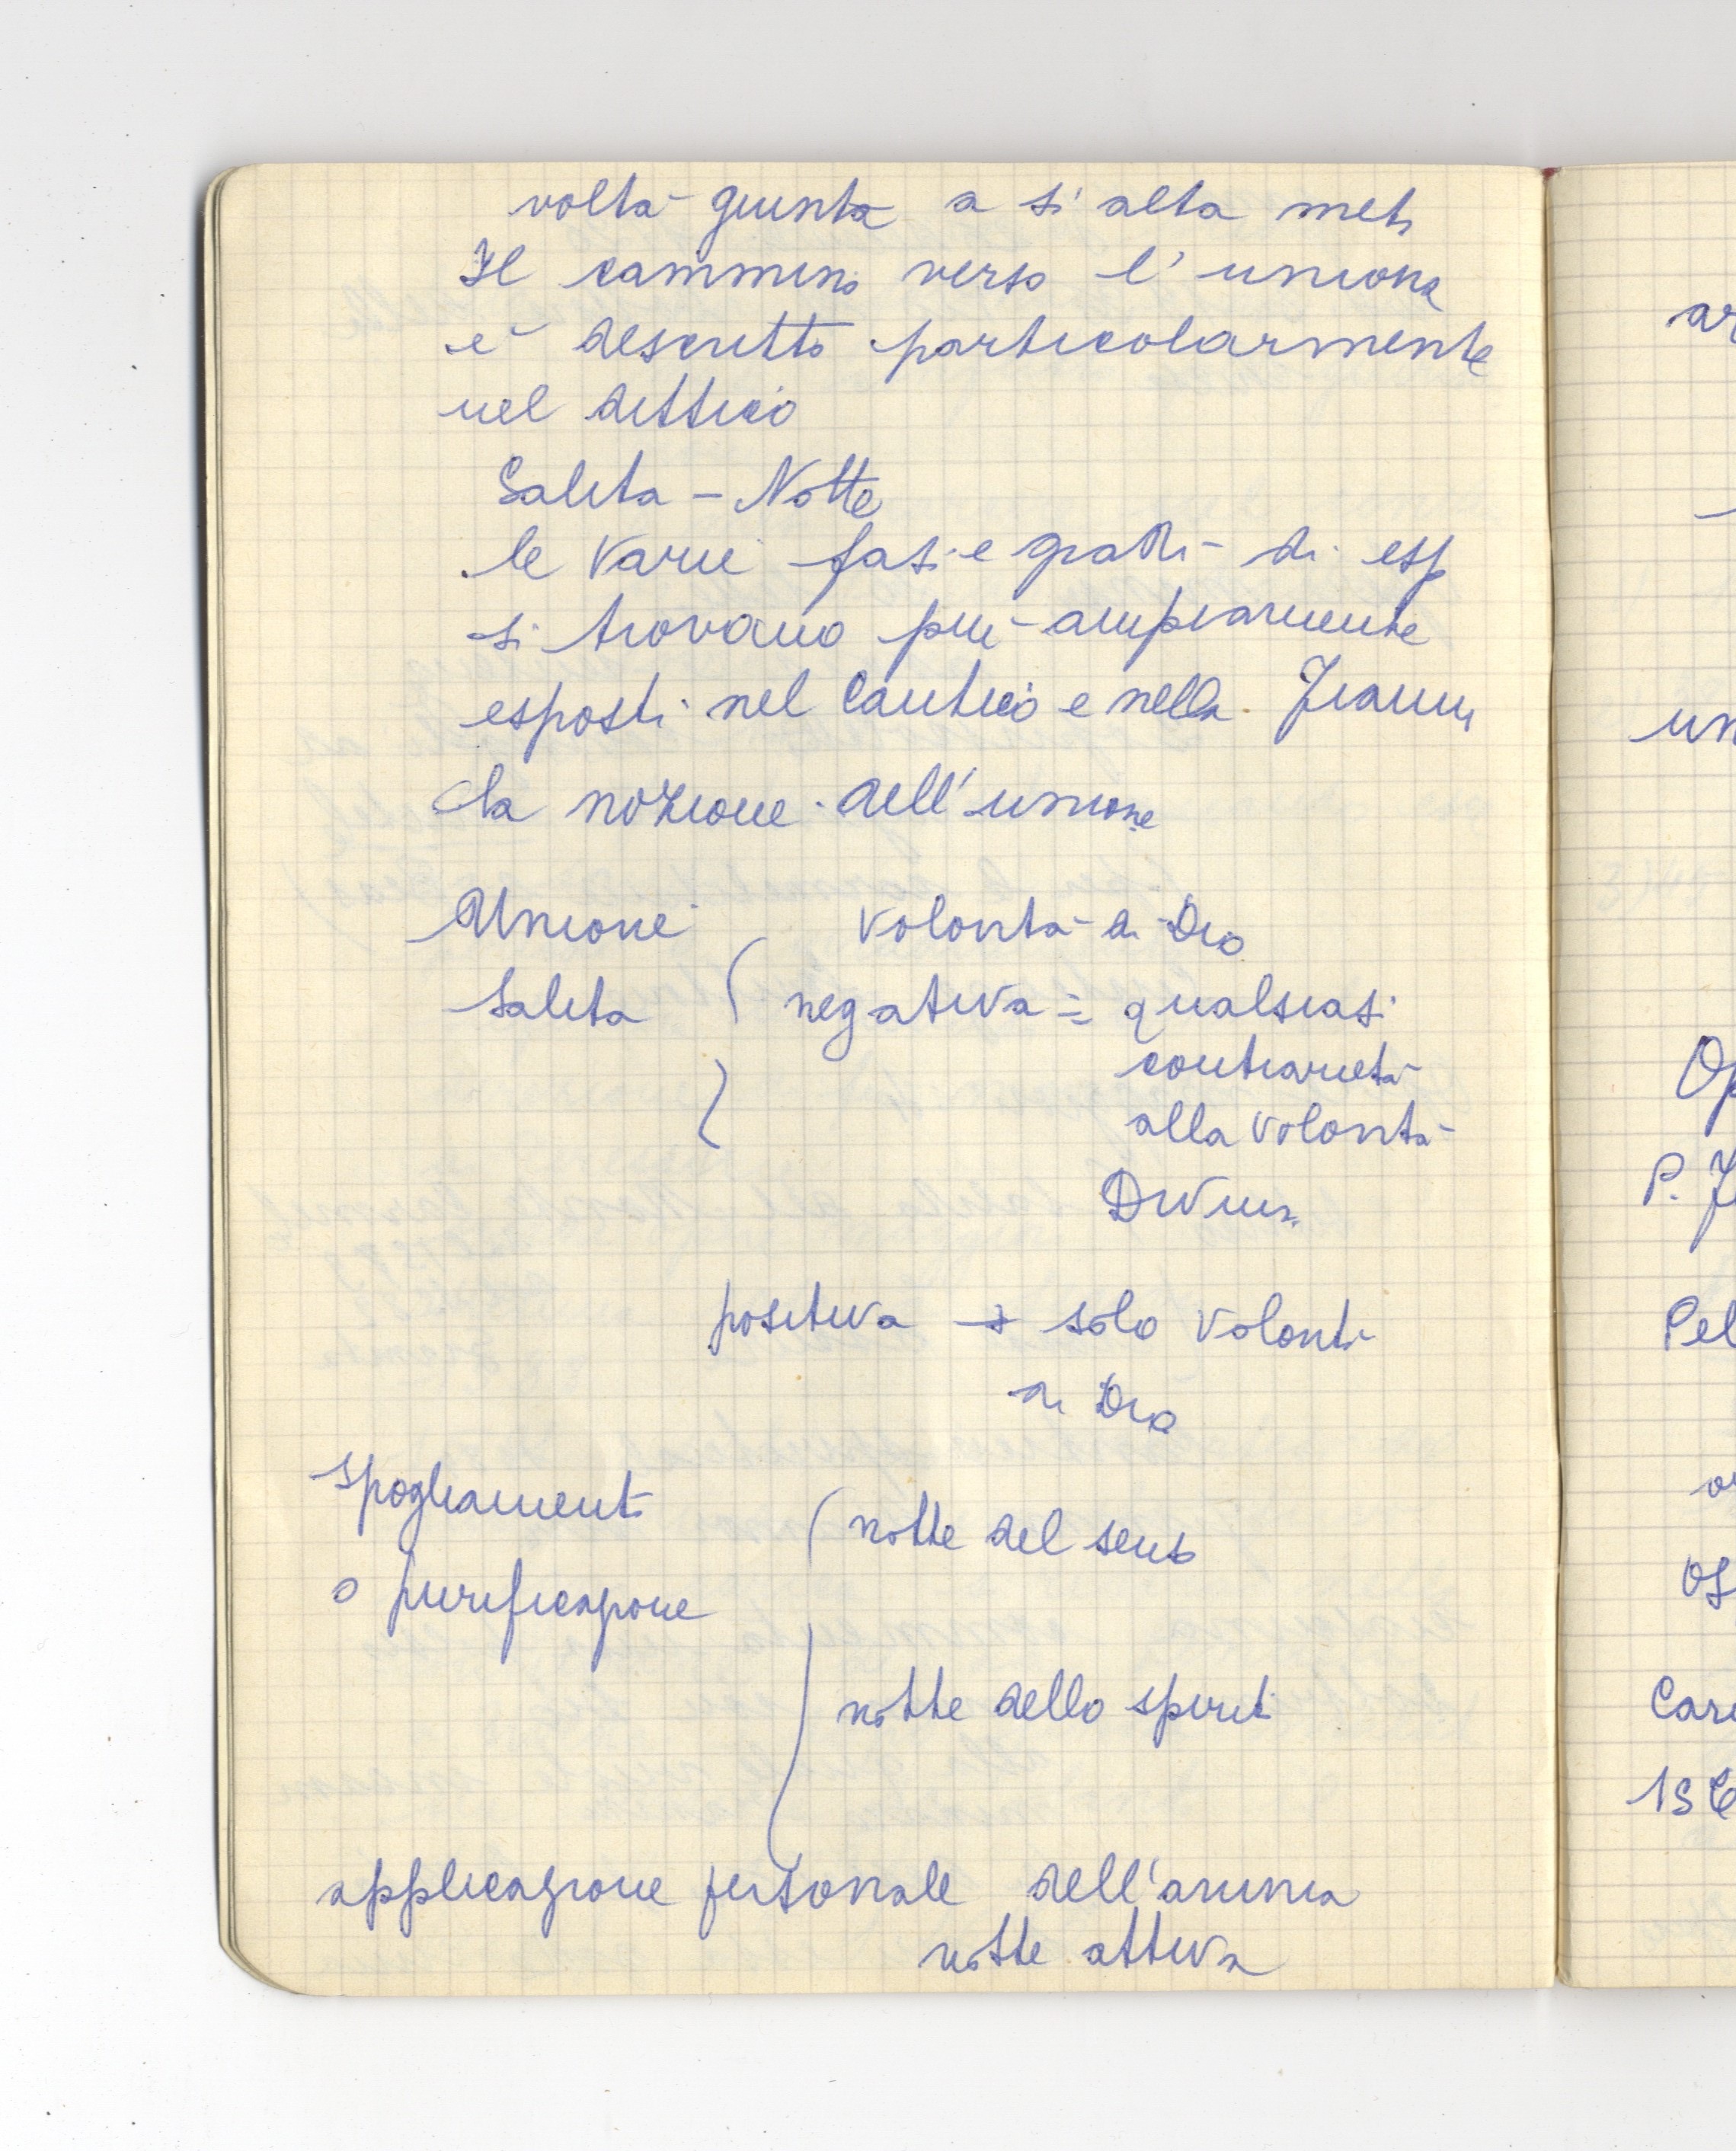 volta giunta a sì alta meta
Il cammino verso l'unione
è descritto particolarmente
nel dittico
Salita - Notte
le varie fasi e gradi di esp
si trovano più ampiamente
esposti nel Cantico e nella Fiamm
la nozione dell'unione
Unione volontà di Dio
Salita negativa = qualsiasi
contrarietà
alla volontà
Divina
positiva → solo volontà
di Dio
spogliamento
notte del senso
o purificazione
notte dello spirito
applicazione personale dell'anima
notte attiva
ar
un
Op
P.
Pel
Of
Car